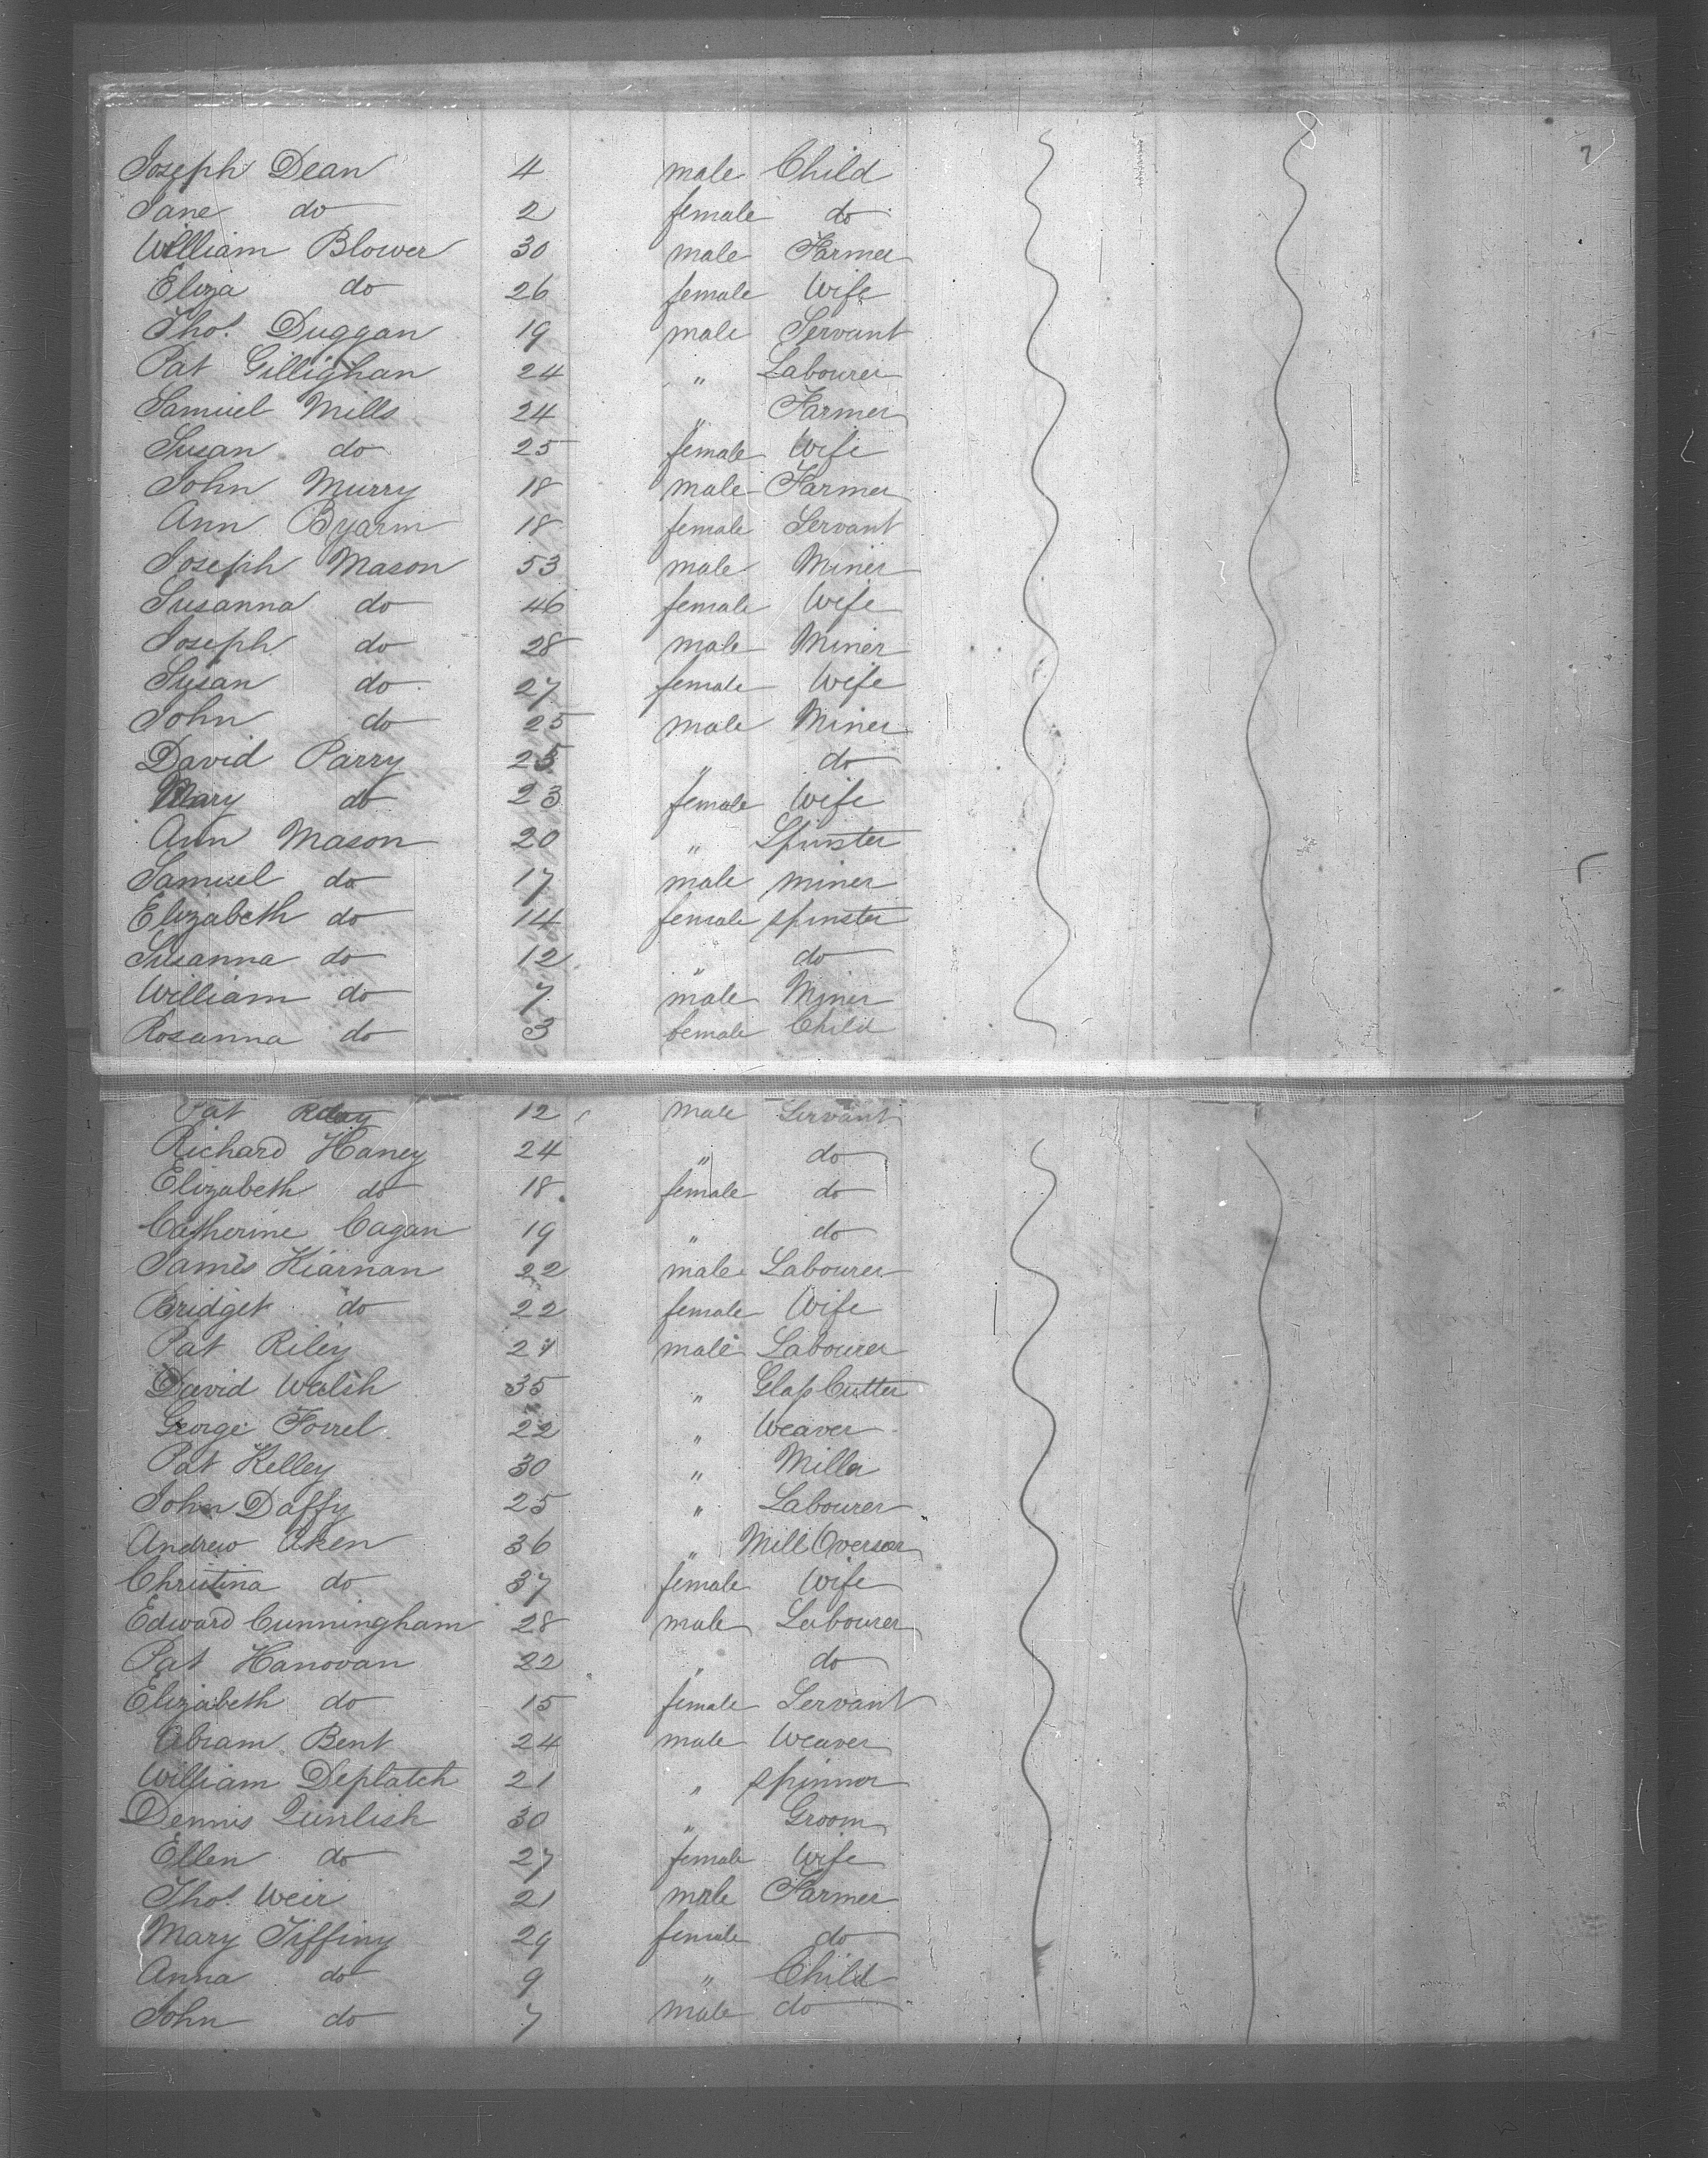 Joseph Dean 4 male Child
Jane do 2 female do
William Blower 30 male Farmer
Eliza do 26 female Wife
Thos. Duggan 19 male Servant
Pat Gillighan 24 " Labourer
Samuel Mills 24 " Farmer
Susan do 25 female Wife
John Murry 18 male Farmer
Ann Byarm 18 female Servant
Joseph Mason 53 male Miner
Susanna do 46 female Wife
Joseph do 28 male Miner
Susan do 27 female Wife
John do 25 male Miner
David Parry 25 " do
Mary do 23 female Wife
Ann Mason 20 " Spinster
Samuel do 17 male miner
Elizabeth do 14 female spinster
Susanna do 12 " do
William do 7 male Miner
Rosanna do 3 female Child
Pat 12 male Servant
Richard Haney 24 " do
Elizabeth do 18 female do
Catherine Cagan 19 " do
James Kiarnan 22 male Labourer
Bridget do 22 female Wife
Pat Riley 21 male Labourer
David Walsh 35 " Glass Cutter
George Forrel 22 " Weaver
Pat Kelley 30 " Miller
John Daffy 25 " Labourer
Andrew Aken 36 " Mill Overseer
Christina do 37 female Wife
Edward Cunningham 28 male Labourer
Pat Hanovan 22 " do
Elizabeth do 15 female Servant
Abram Bent 24 male Weaver
William Deplatch 21 " spinner
Dennis Quinlish 30 " Groom
Ellen do 27 female Wife
Thos. Weir 21 male Farmer
Mary Tiffiny 29 female do
Anna do 9 " Child
John do 7 male do